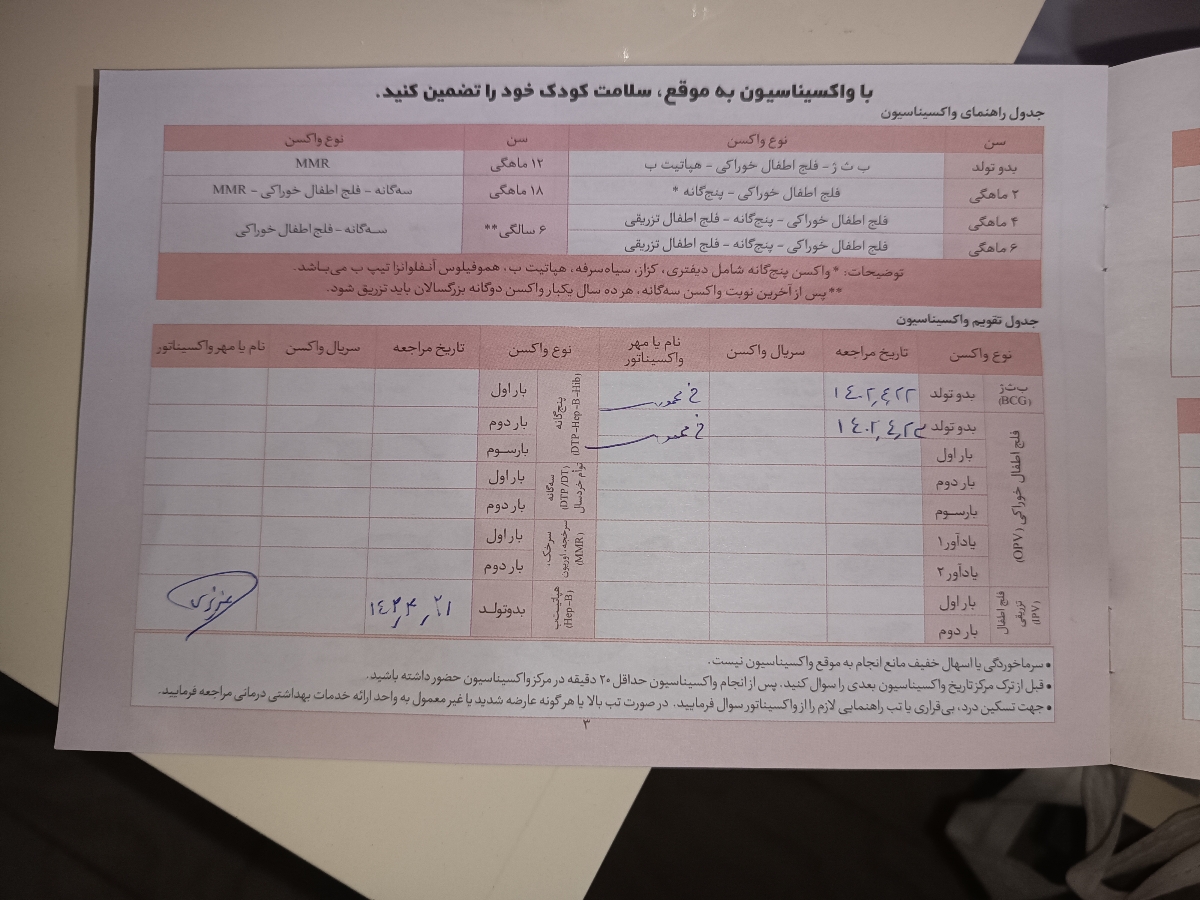 با واکسیناسیون به موقع، سلامت کودک خود را تضمین کنید.
جدول راهنمای واکسیناسیون
سن نوع واکسن سن نوع واکسن
بدو تولد ب ث ژ - فلج اطفال خوراکی - هپاتیت ب ۱۲ ماهگی MMR
۲ ماهگی فلج اطفال خوراکی - پنج‌گانه * ۱۸ ماهگی سه‌گانه - فلج اطفال خوراکی - MMR
۴ ماهگی فلج اطفال خوراکی - پنج‌گانه - فلج اطفال تزریقی
۶ ماهگی فلج اطفال خوراکی - پنج‌گانه - فلج اطفال تزریقی
۶ سالگی** سه‌گانه - فلج اطفال خوراکی
توضیحات: * واکسن پنج‌گانه شامل دیفتری، کزاز، سیاه‌سرفه، هپاتیت ب، هموفیلوس آنفلوانزا تیپ ب می‌باشد.
**پس از آخرین نوبت واکسن سه‌گانه، هر ده سال یکبار واکسن دوگانه بزرگسالان باید تزریق شود.
جدول تقویم واکسیناسیون
نوع واکسن تاریخ مراجعه سریال واکسن نام یا مهر واکسیناتور نوع واکسن تاریخ مراجعه سریال واکسن نام یا مهر واکسیناتور
ب‌ث‌ژ (BCG) بدو تولد ۱۴۰۲٫۴٫۲۲
فلج اطفال خوراکی (OPV)
بدو تولد
بار اول
بار دوم
بارسوم
یادآور ۱
یادآور ۲
فلج اطفال تزریقی (IPV)
بار اول
بار دوم
پنج‌گانه (DTP-Hep-B-Hib)
بار اول
بار دوم
بارسوم
سه‌گانه (DTP/DT) توأم خردسال
بار اول
بار دوم
سرخک، سرخجه، اوریون (MMR)
بار اول
بار دوم
هپاتیت‌ب (Hep-B) بدوتولد
عزیزی
• سرماخوردگی یا اسهال خفیف مانع انجام به موقع واکسیناسیون نیست.
• قبل از ترک مرکز تاریخ واکسیناسیون بعدی را سوال کنید. پس از انجام واکسیناسیون حداقل ۲۰ دقیقه در مرکز واکسیناسیون حضور داشته باشید.
• جهت تسکین درد، بی‌قراری یا تب راهنمایی لازم را از واکسیناتور سوال فرمایید. در صورت تب بالا یا هر گونه عارضه شدید یا غیر معمول به واحد ارائه خدمات بهداشتی درمانی مراجعه فرمایید.
۳